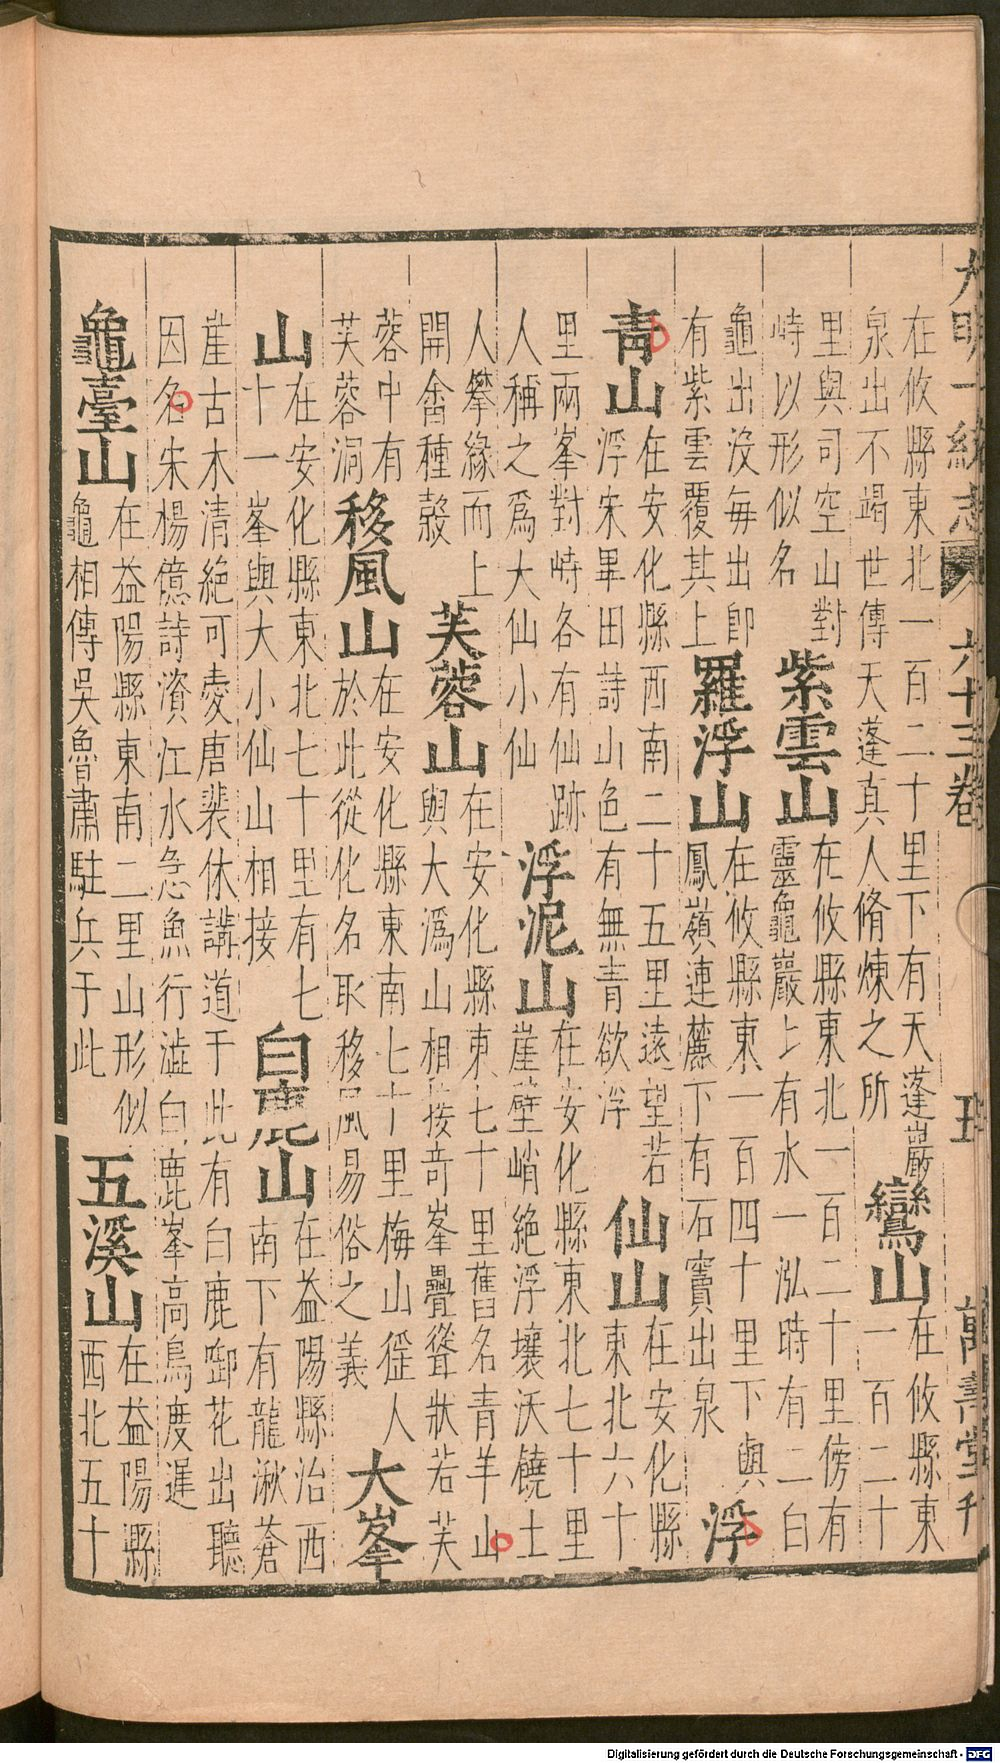 大明一統志 六十三卷 萬壽堂刊
在攸縣東北一百二十里下有天蓬巖
泉出不竭世傳天蓬真人脩煉之所
鸞山
在攸縣東
一百二十
里與司空山對
峙以形似名
紫雲山
在攸縣東北一百二十里傍有
靈龜巖上有水一泓時有二白
龜出沒每出即
有紫雲覆其上
羅浮山
在攸縣東一百四十里下與
鳳嶺連麓下有石竇出泉
浮
青山
在安化縣西南二十五里遠望若
浮宋畢田詩山色有無青欲浮
仙山
在安化縣
東北六十
里兩峯對峙各有仙跡
人稱之爲大仙小仙
浮泥山
在安化縣東北七十里
崖壁峭絕浮壤沃饒土
人攀緣而上
開畬種穀
芙蓉山
在安化縣東七十里舊名青羊山
與大溈山相接奇峯疊聳狀若芙
蓉中有
芙蓉洞
移風山
在安化縣東南七十里梅山徭人
於此從化名取移風易俗之義
大峯
山
在安化縣東北七十里有七
十一峯與大小仙山相接
白鹿山
在益陽縣治西
南下有龍湫蒼
崖古木清絕可愛唐裴休講道于此有白鹿啣花出聽
因名朱楊億詩資江水急魚行澁白鹿峯高鳥度遲
龜臺山
在益陽縣東南二里山形似
龜相傳吳魯肅駐兵于此
五溪山
在益陽縣
西北五十
Digitalisierung gefördert durch die Deutsche Forschungsgemeinschaft - DFG